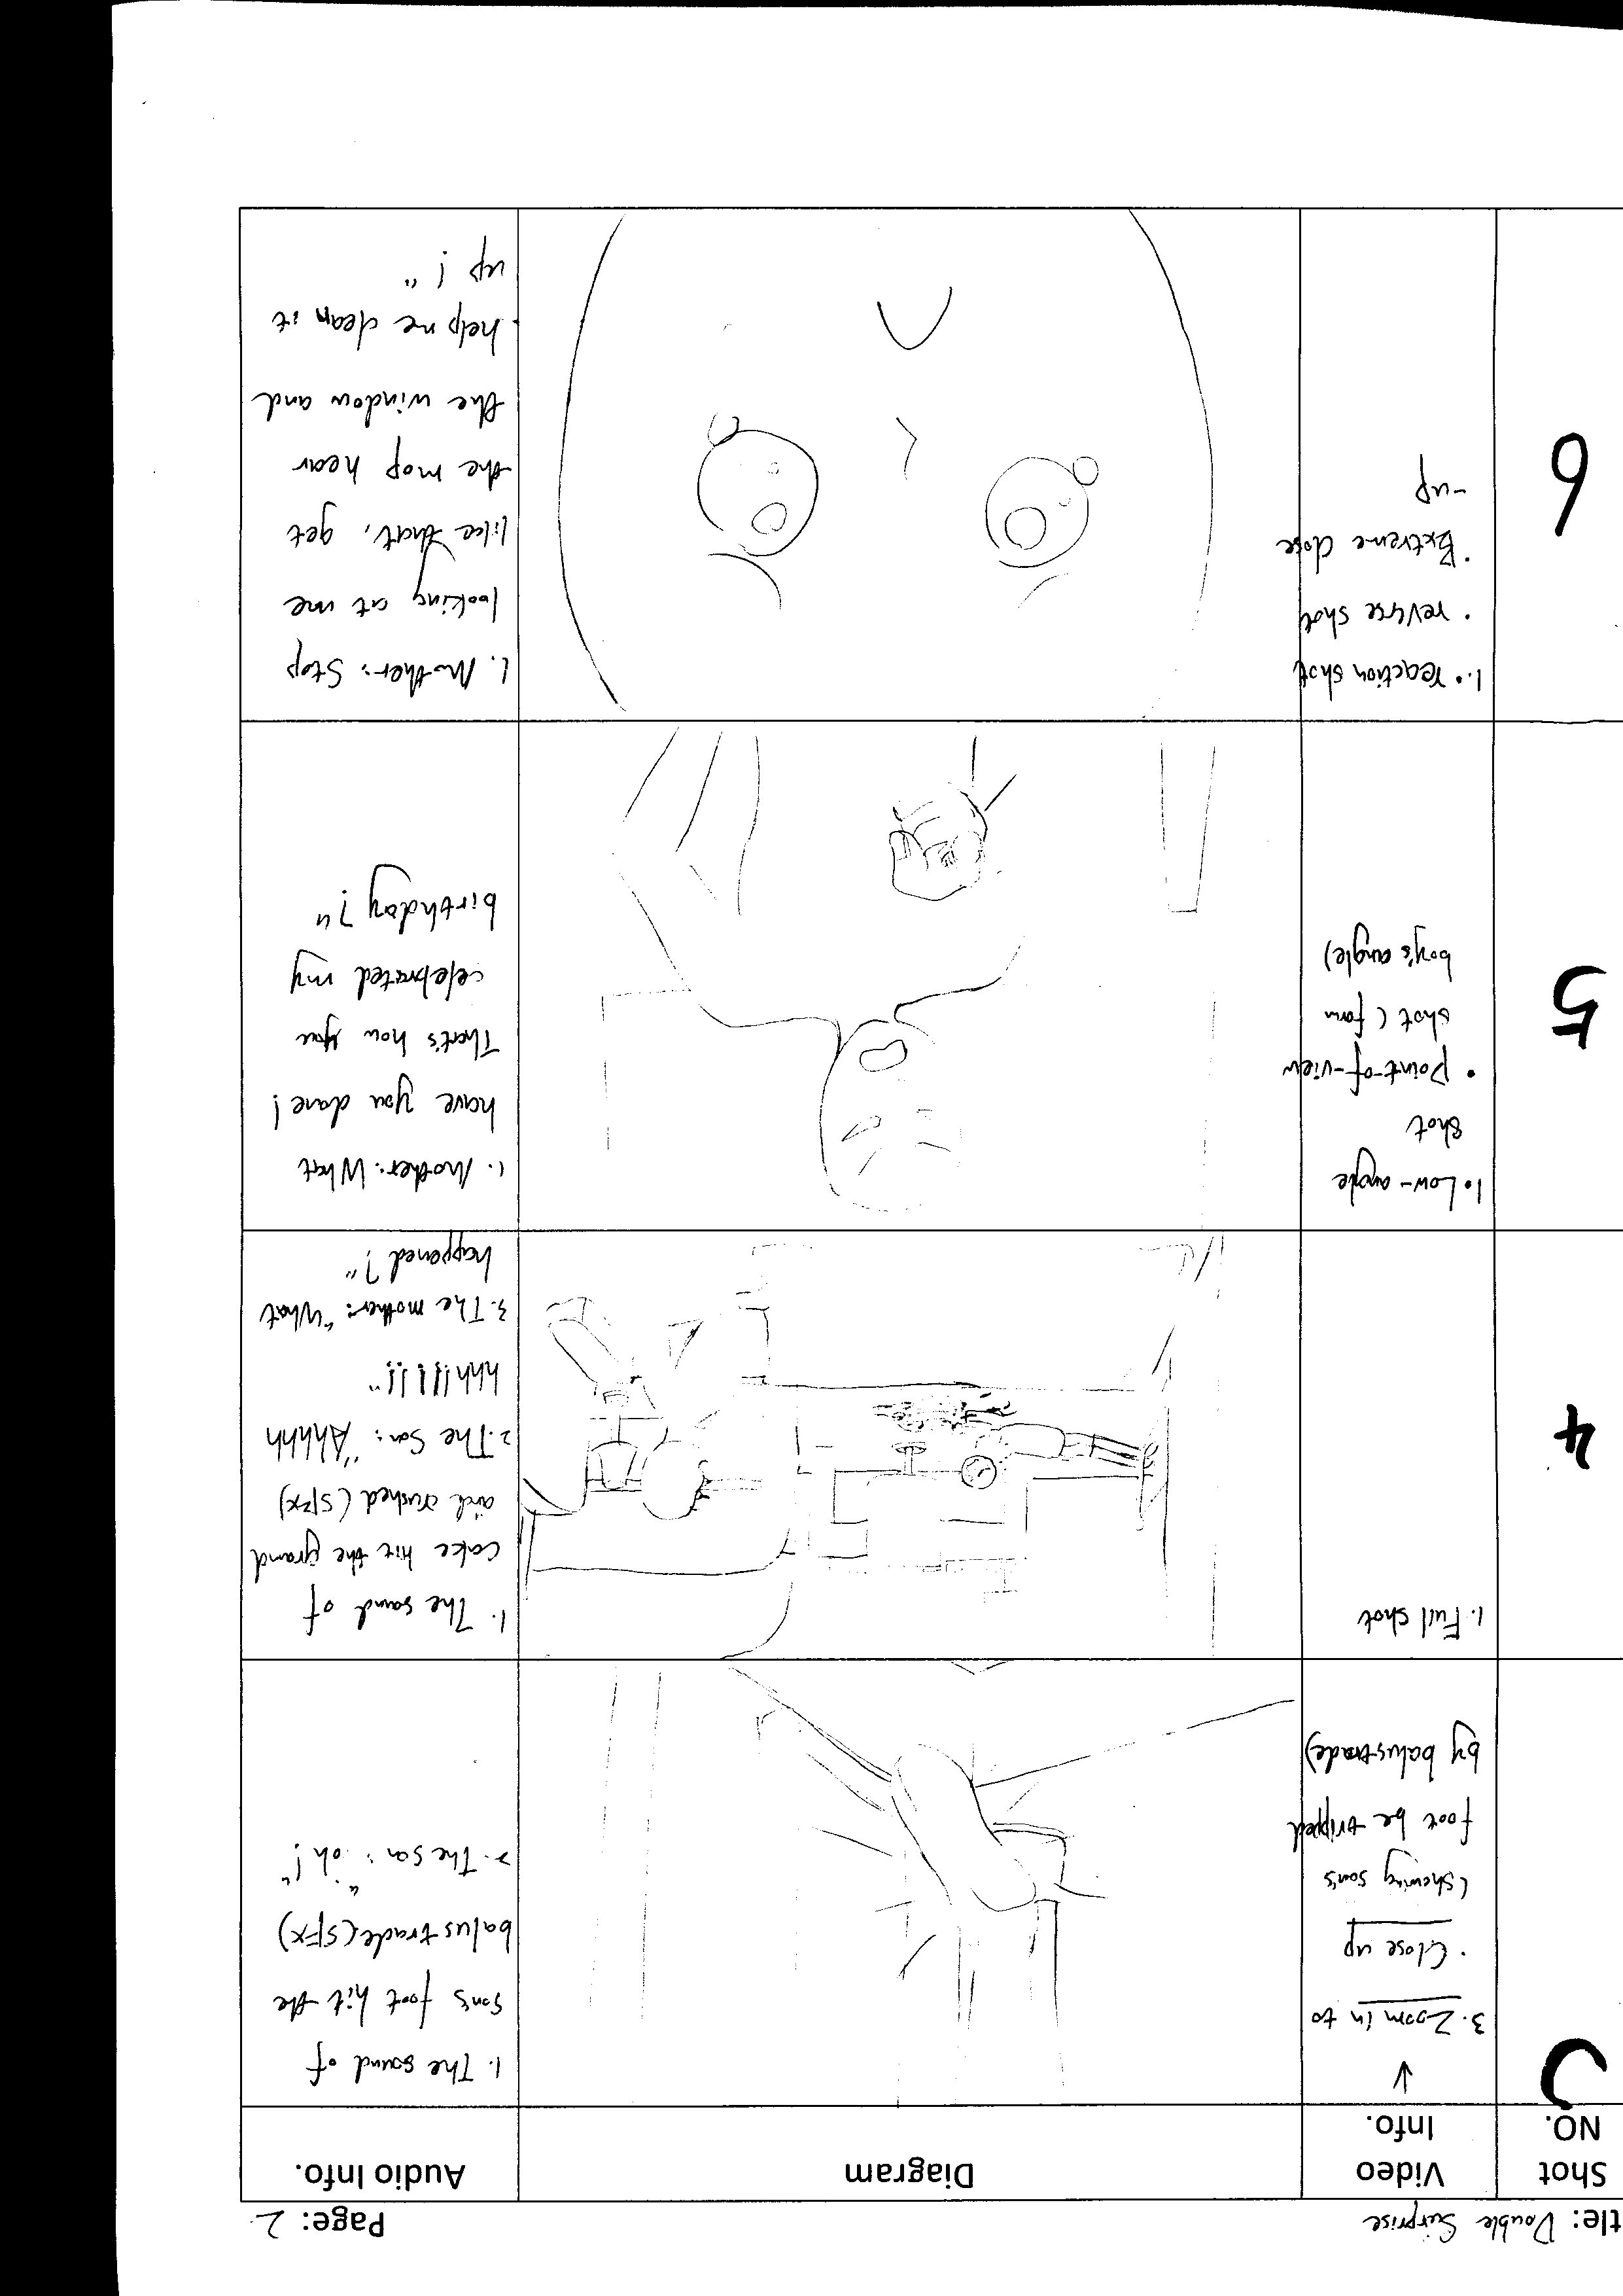 tle: Double Surprise
Page: 2
Shot NO.
Video Info.
Diagram
Audio Info.
↓
3. Zoom in to
· Close up
(showing son's
foot be tripped
by balustrade)
1. The sound of
son's foot hit the
balustrade (SFX)
2. The son: "oh!"
4
1. Full shot
1. The sound of
cake hit the ground
and crushed (SFX)
2. The Son: "Ahhhh
hhh!!!!!!"
3. The mother: "What
happened?"
5
1. Low-angle
shot
• Point-of-view
shot (form
boy's angle)
1. Mother: What
have you done!
That's how you
celebrated my
birthday?"
6
1. • reaction shot
• reverse shot
• Extreme close
-up
1. Mother: Stop
looking at me
like that, get
the mop near
the window and
help me clean it
up!"